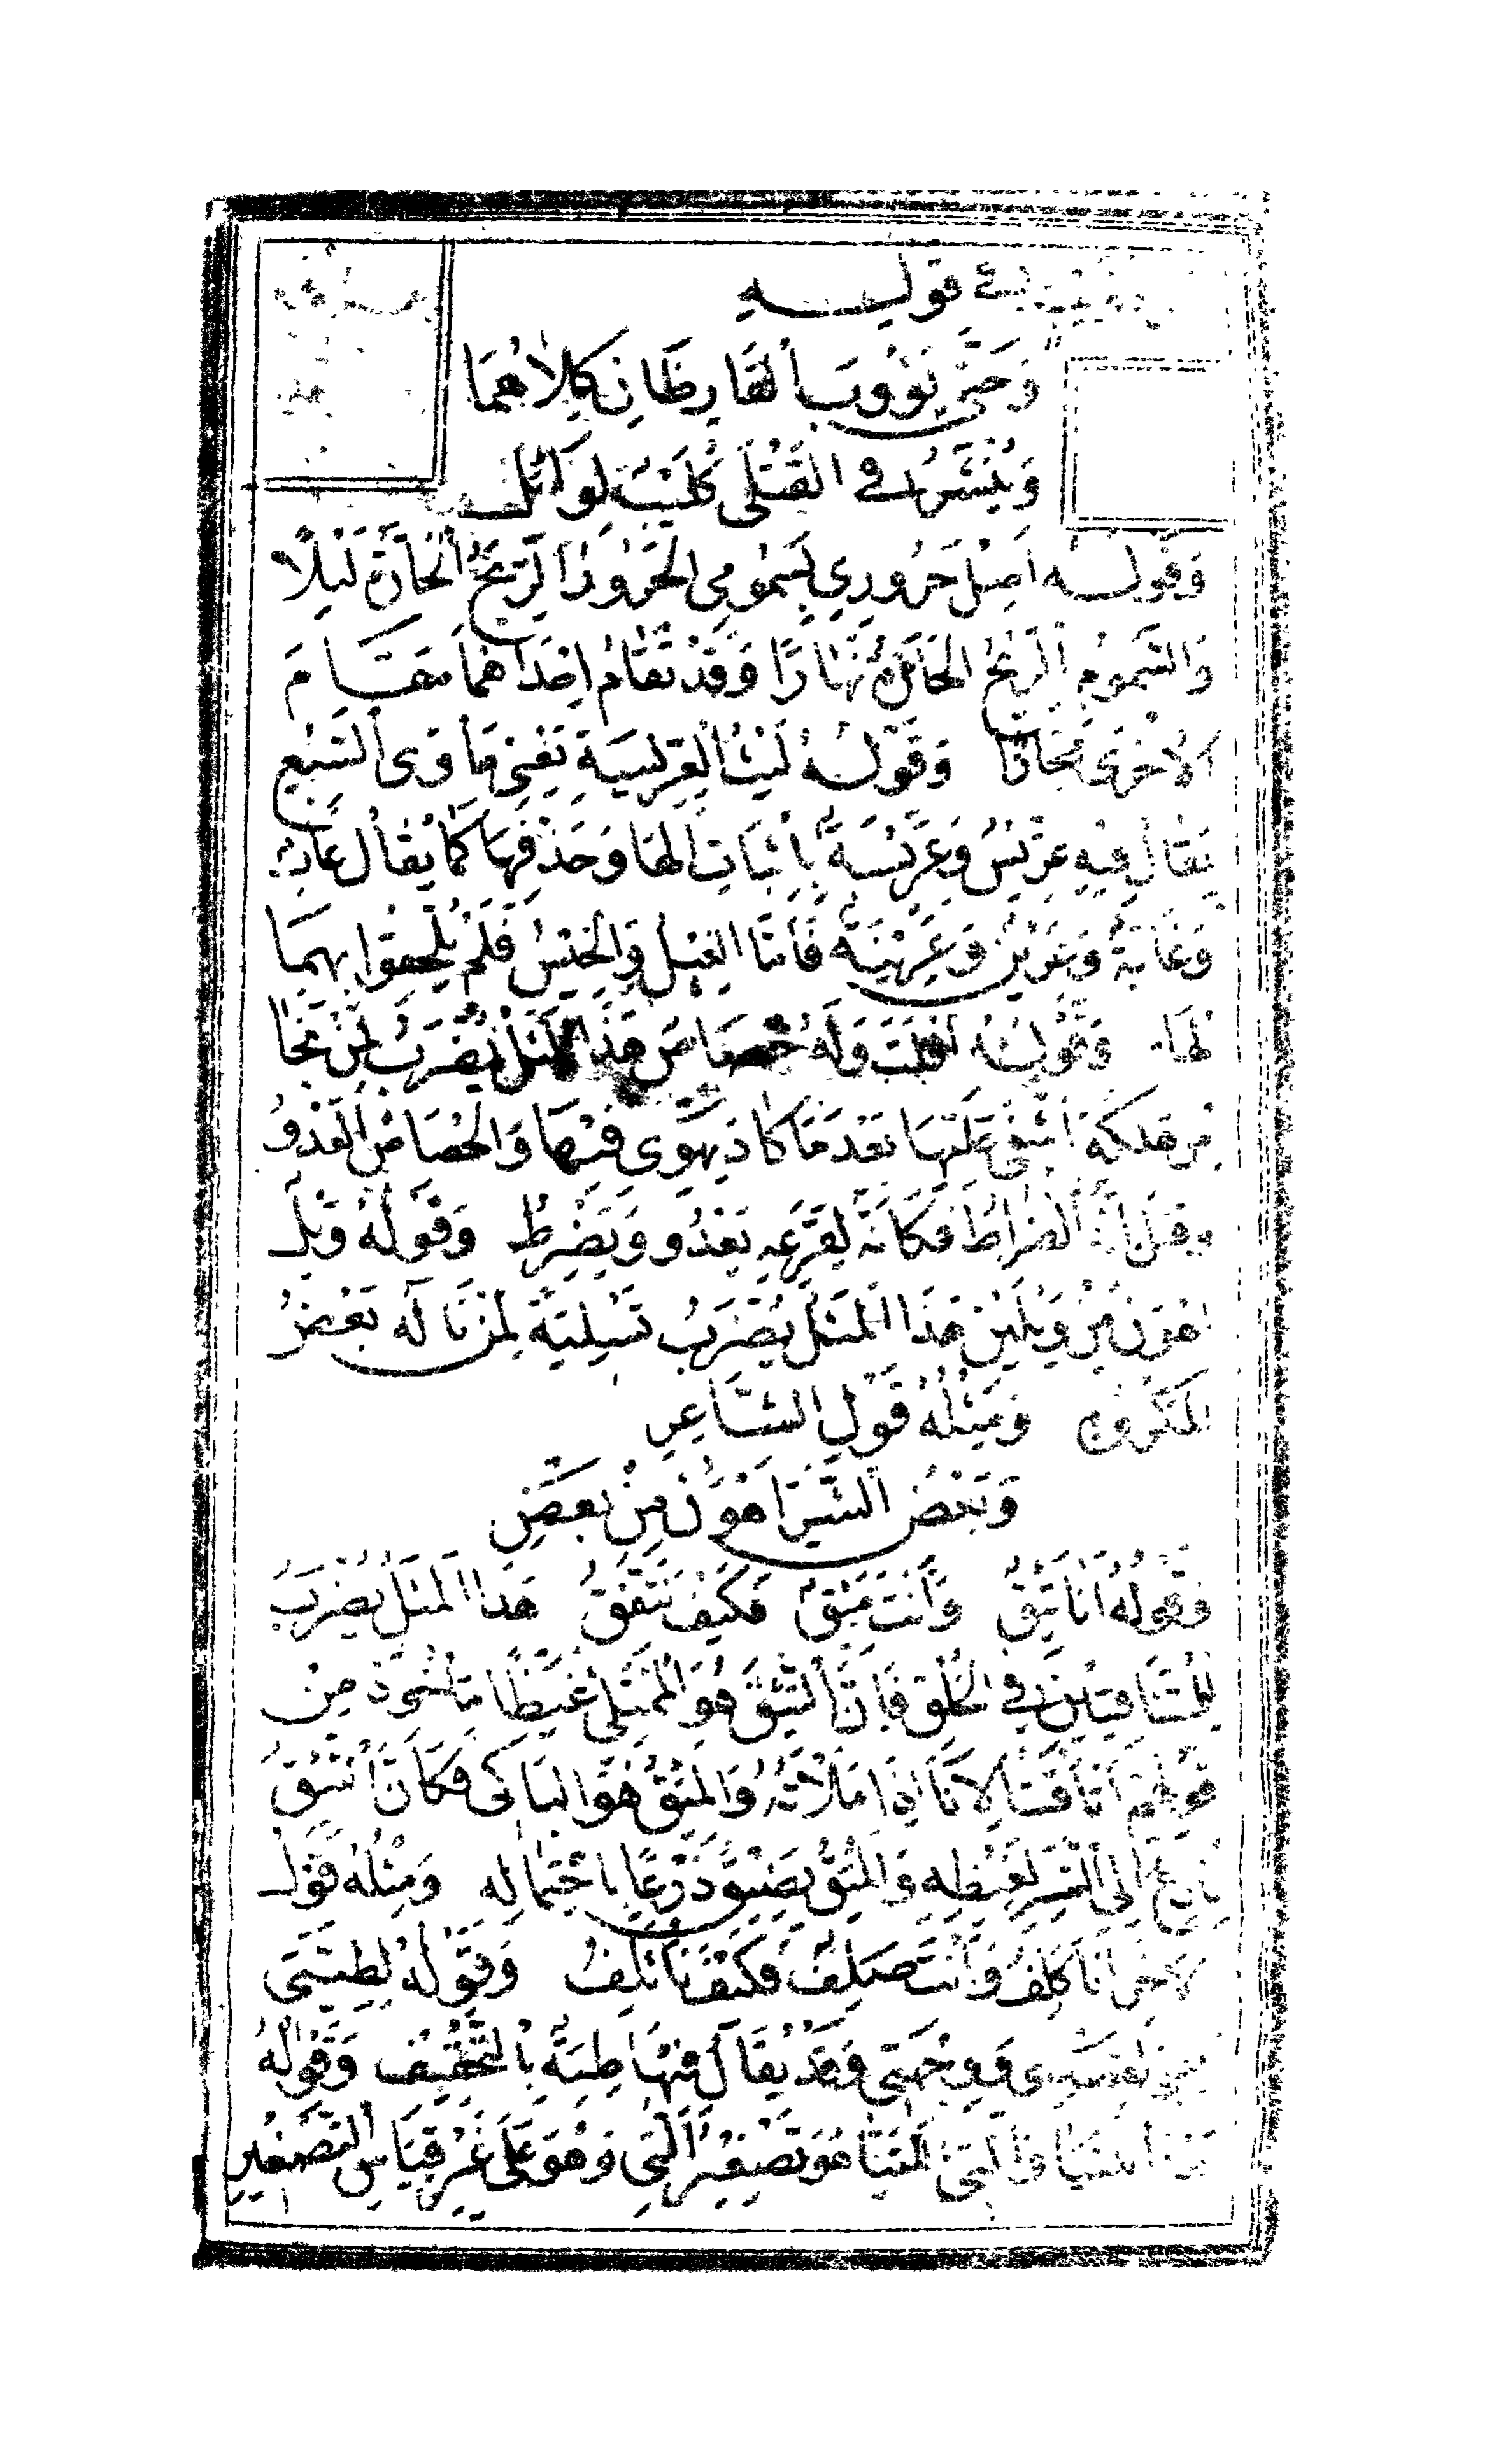 في قوله
وَحَتَّى يَؤُوبَ الْقَارِظَانِ كِلَاهُمَا
وَيُنْشَرَ فِي الْقَتْلَى كُلَيْبٌ لِوَائِلِ
وَقَوْلُه اَصِلُ حَرُورِي بِسَمُومِي الْحَرُورُ اَلرِّيحُ الْحَارَّةُ لَيْلًا
وَالسَّمُومُ الرِّيحُ الْحَارَّةُ نَهَارًا وَقَدْ تُقَامُ اِحْدَاهُمَا مَقَامَ
الاُخْرَى مَجَازًا وَقَوْلُهُ لَيْثُ الْعِرِّيسَةِ يَعْنِي مَأوَى السَّبُعِ
يُقَالُ فِيهِ عِرِّيسٌ وَعِرِّيسَةٌ بِاِثْبَاتِ الْهَا وَحَذْفِهَا كَمَا يُقَالُ غَابٌ
وَغَابَةٌ وَعَرِينٌ وَعَرِينَةٌ فَأَمَّا الْغِيلُ وَالْخِيسُ فَلَمْ يُلْحِقُوا بِهِمَا
الْهَا وَقَوْلُهُ اَفْلَتَ وَلَهُ حُصَاصٌ هَذَا الْمَثَلُ يُضْرَبُ لِمَنْ نَجَا
مِنْ هَلَكَةٍ اَشْفَى عَلَيْهَا بَعْدَمَا كَادَ يَهْوِي فِيهَا وَالْحُصَاصُ الْعَدْوُ
وقيل انه الضُّرَاطُ فَكَأنَّهُ لِفَزَعِهِ يَعْدُو وَيَضْرِطُ وَقَوْلُهُ وَيْلٌ
اهْوَنُ مِنْ وَيْلَيْنِ هَذَا الْمَثَلُ يُضْرَبُ تَسْلِيَةً لِمَنْ نَالَهُ بَعْضُ
الْمَكْرُوهِ وَمِثْلُهُ قَوْلُ الشَّاعِرِ
وَبَعْضُ الشَّرِّ اَهْوَنُ مِنْ بَعْضِ
وَقَوْلُهُ اَنَا تَئِقٌ وَاَنْتَ مَئِقٌ فَكَيْفَ نَتَّفِقُ هَذَا الْمَثَلُ يُضْرَبُ
لِلْمُتَنَافِيَيْنِ فِي الْخُلُقِ فَاِنَّ التَّئِقَ هُوَ الْمُمْتَلِى غَيْظًا مَأْخُوذٌ مِنْ
قَوْلِهِمْ اَتْأَقْتُ الاِنَاَ اِذَا مَلَأْتُهُ وَالْمَئِقُ هُوَ الْبَاكِي فَكَأنَّ التَّئِقَ
يَنْزِعُ اِلَى الشَّرِّ لِغَيْظِهِ وَالْمَئِقُ يَضِيقُ ذَرْعًا بِاحْتِمَالِهِ وَمِثْلُهُ قَوْلُ
الآخر اَنَا كَلِفٌ وَاَنْتَ صَلِفٌ فَكَيْفَ نَأْتَلِفُ وَقَوْلُهُ لِطِيَّتِي
يعني لقصدي ووِجْهَتِي وَقَدْ يُقَالُ فِيهَا طِيَةٌ بِالتَّخْفِيفِ وَقَوْلُهُ
اللَّتَيَّا وَالَّتِي اللَّتَيَّا هُوَ تَصْغِيرُ الَّتِي وَهُوَ عَلَى غَيْرِ قِيَاسِ التَّصْغِيرِ